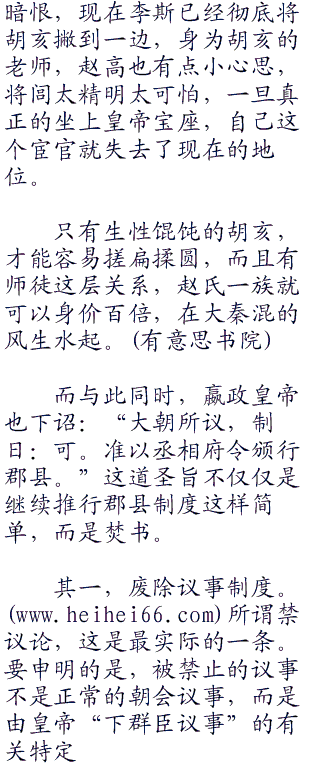 暗恨，现在李斯已经彻底将
胡亥撇到一边，身为胡亥的
老师，赵高也有点小心思，
将闾太精明太可怕，一旦真
正的坐上皇帝宝座，自己这
个宦官就失去了现在的地
位。
只有生性馄饨的胡亥，
才能容易搓扁揉圆，而且有
师徒这层关系，赵氏一族就
可以身价百倍，在大秦混的
风生水起。(有意思书院)
而与此同时，嬴政皇帝
也下诏：“大朝所议，制
曰：可。准以丞相府令颁行
郡县。”这道圣旨不仅仅是
继续推行郡县制度这样简
单，而是焚书。
其一，废除议事制度。
(www.heihei66.com)所谓禁
议论，这是最实际的一条。
要申明的是，被禁止的议事
不是正常的朝会议事，而是
由皇帝“下群臣议事”的有
关特定